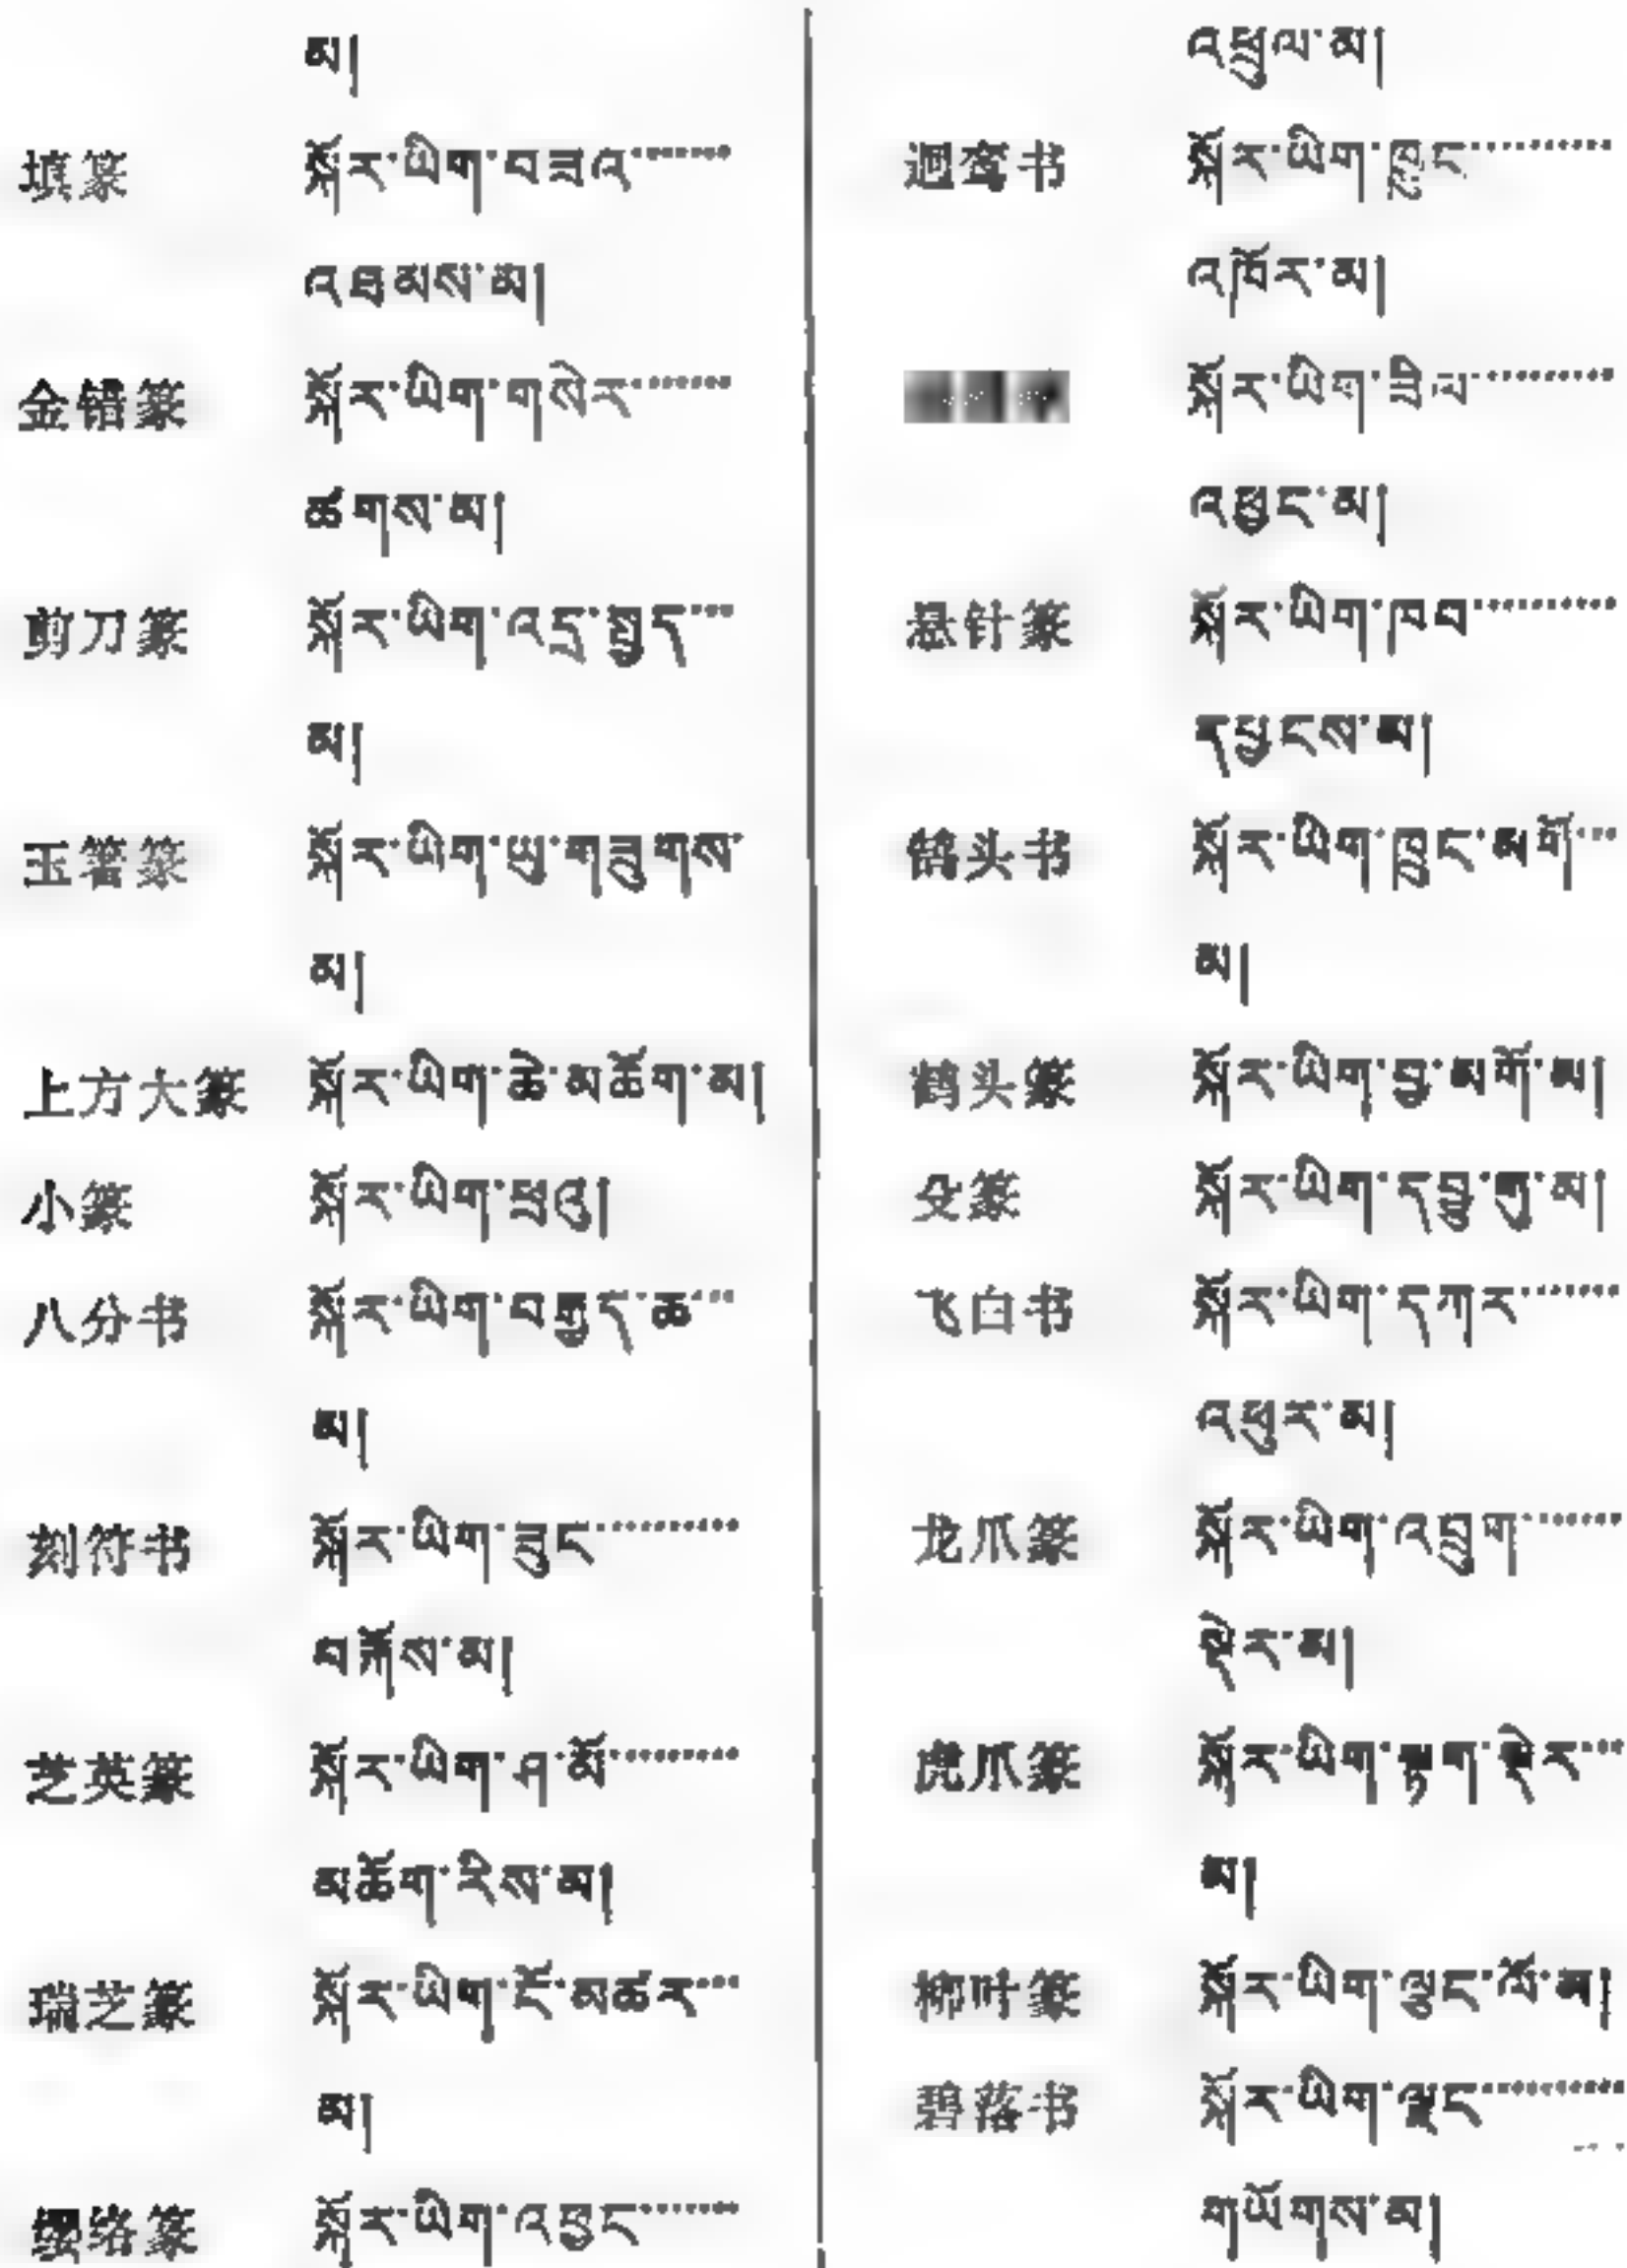 མ།
填篆 སྐོར་ཡིག་བཟའ་
འཐམས་མ།
金错篆 སྐོར་ཡིག་གསེར་
ཆགས་མ།
剪刀篆 སྐོར་ཡིག་འདྲ་གྲུད་
མ།
玉箸篆 སྐོར་ཡིག་ཡུ་གཟུགས་
མ།
上方大篆 སྐོར་ཡིག་ཆེ་མཆོག་མ།
小篆 སྐོར་ཡིག་ཕྲའུ།
八分书 སྐོར་ཡིག་བརྒྱད་ཆ་
མ།
刻符书 སྐོར་ཡིག་ཟུང་
བརྐོས་མ།
芝英篆 སྐོར་ཡིག་ཤ་མོ་
མཆོག་རིས་མ།
瑞芝篆 སྐོར་ཡིག་ངོ་མཚར་
མ།
缨络篆 སྐོར་ཡིག་འཕྱང་
འཕྲུལ་མ།
迴鸾书 སྐོར་ཡིག་ཁྲུང་
འཁོར་མ།
སྐོར་ཡིག་ཟིལ་
འཕྱང་མ།
悬针篆 སྐོར་ཡིག་ཁབ་
དཔྱངས་མ།
鹄头书 སྐོར་ཡིག་ཁྲུང་མགོ་
མ།
鹤头篆 སྐོར་ཡིག་བྱ་མགོ་མ།
殳篆 སྐོར་ཡིག་དབྱུ་གུ་མ།
飞白书 སྐོར་ཡིག་དཀར་
འཕུར་མ།
龙爪篆 སྐོར་ཡིག་འབྲུག་
སྡེར་མ།
虎爪篆 སྐོར་ཡིག་སྟག་སྡེར་
མ།
柳叶篆 སྐོར་ཡིག་ལྕང་ལོ་མ།
碧落书 སྐོར་ཡིག་ལྗང་
གཡོགས་མ།